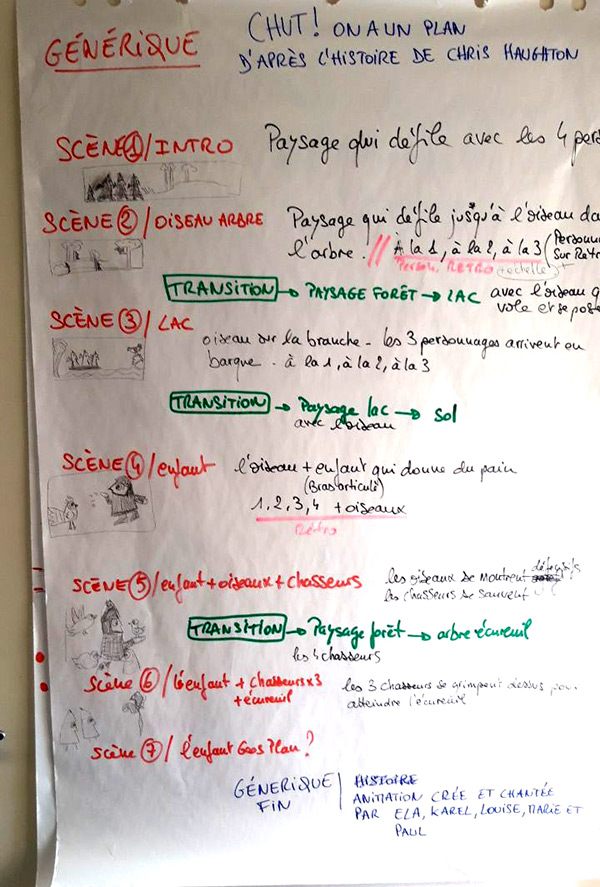 GÉNÉRIQUE
CHUT! ON A UN PLAN
D'APRÈS L'HISTOIRE DE CHRIS HAUGHTON
SCÈNE 1 / INTRO
Paysage qui défile avec les 4 pers
SCÈNE 2 / OISEAU ARBRE
Paysage qui défile jusqu'à l'oiseau da
l'arbre. // À la 1, à la 2, à la 3 (Personn
sur Rétr
Person. RETRO + échelle
TRANSITION → PAYSAGE FORÊT → LAC avec l'oiseau q
vole et se pose
SCÈNE 3 / LAC
oiseau sur la branche - les 3 personnages arrivent en
barque - à la 1, à la 2, à la 3
TRANSITION → Paysage lac → sol
avec l'oiseau
SCÈNE 4 / enfant
l'oiseau + enfant qui donne du pain
(Bras articulé)
1, 2, 3, 4 + oiseaux
Rétro
SCÈNE 5 / enfant + oiseaux + chasseurs
les oiseaux se montrent
les chasseurs se sauvent
TRANSITION → Paysage forêt → arbre écureuil
les 4 chasseurs
Scène 6 / l'enfant + chasseurs x3
+ écureuil
les 3 chasseurs se grimpent dessus pour
atteindre l'écureuil
Scène 7 / l'enfant Gros Plan?
GÉNERIQUE
FIN
HISTOIRE
ANIMATION CRÉE ET CHANTÉE
PAR ELA, KAREL, LOUISE, MARIE ET
PAUL